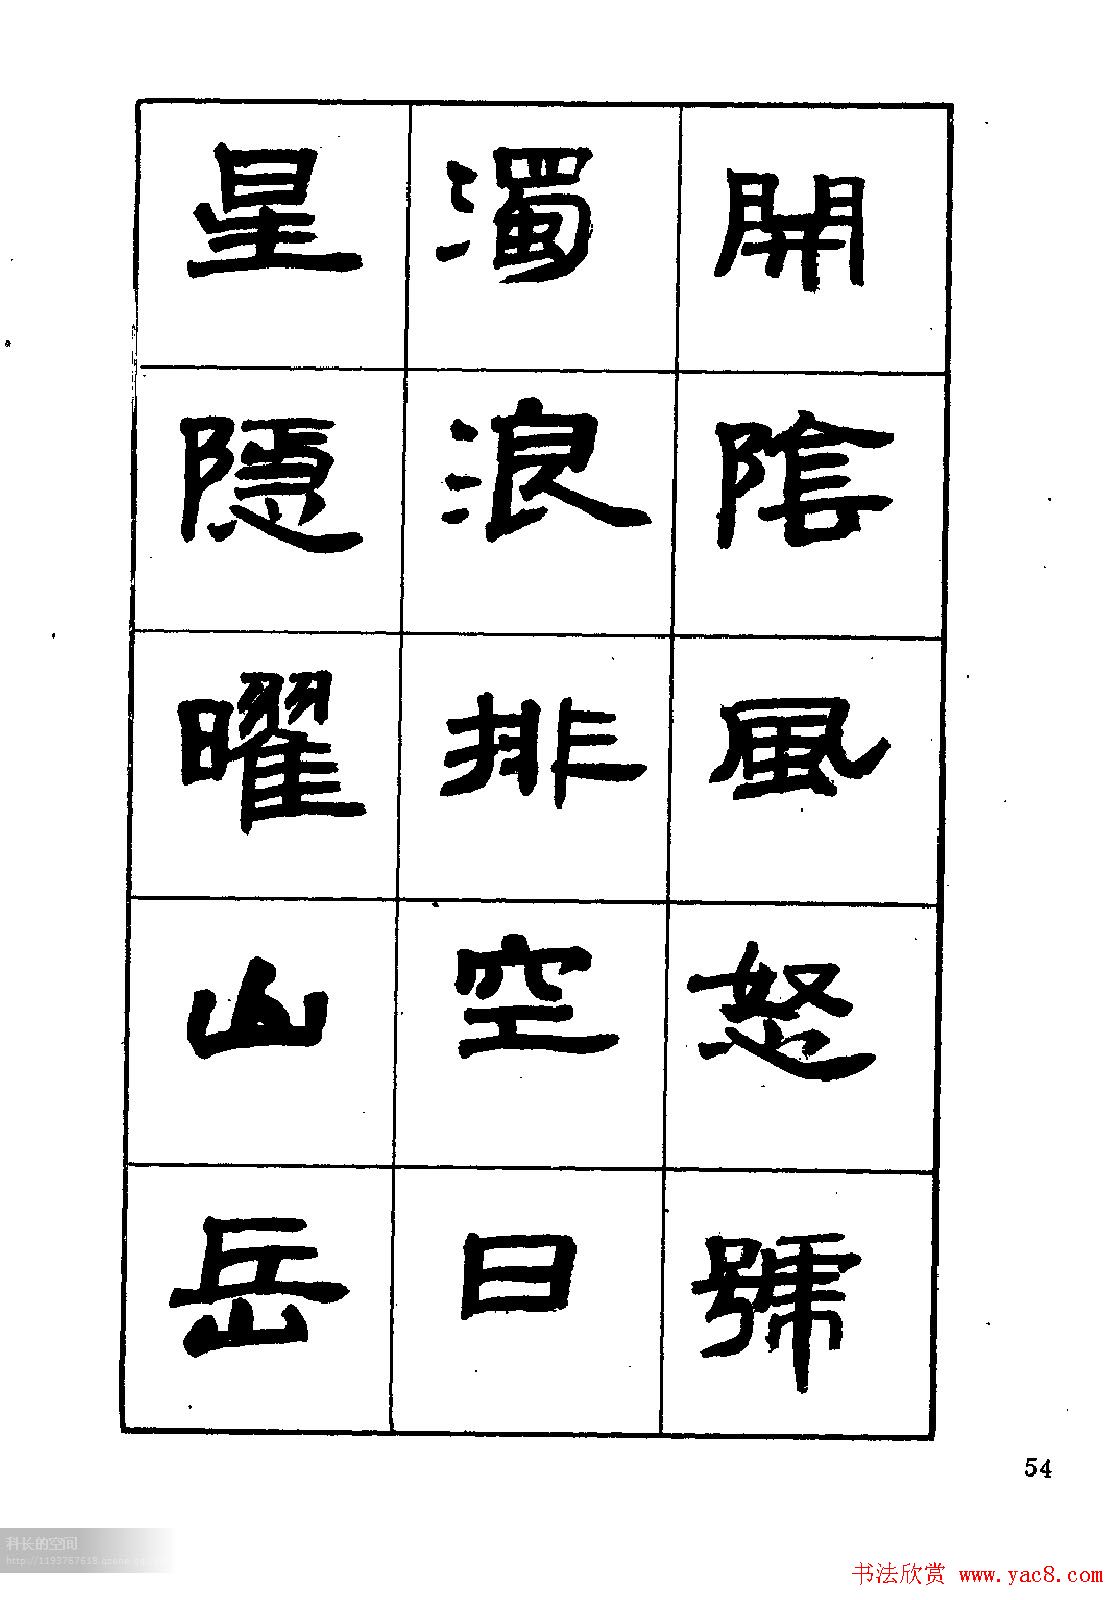 開陰風怒號
濁浪排空日
星隱曜山岳
54
科长的空间
书法欣赏 www.yac8.com